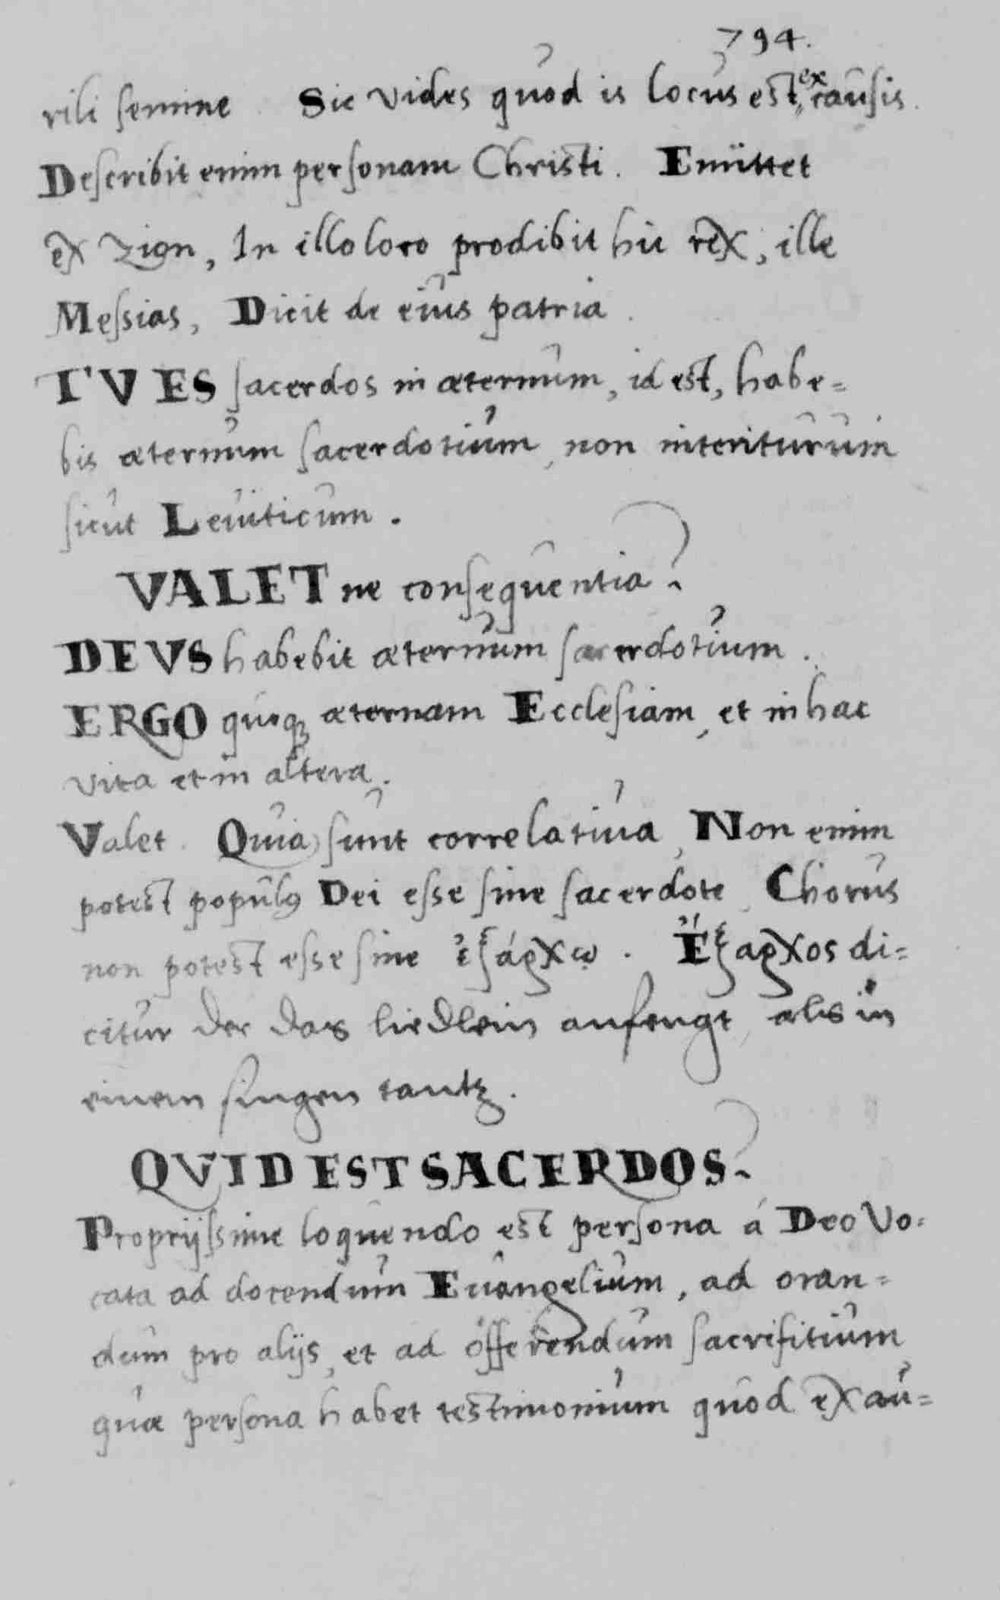 794.
rili semine. Sic vides quod is locus est ex causis.
Describit enim personam Christi. Emittet
ex Zion, In illo loco prodibit hic rex, ille
Messias, Dicit de eius patria.
TV ES sacerdos in æternum, id est, habe=
bis æternum sacerdotium, non interiturum
sicut Leuiticum.
VALET ne consequentia?
DEVS habebit æternum sacerdotium.
ERGO quoqȝ æternam Ecclesiam, et in hac
vita et in altera.
Valet. Quia sunt correlatiua, Non enim
potest populus Dei esse sine sacerdote, Chorus
non potest esse sine ἐξάρχῳ. Ἔξαρχος di=
citur der das liedlein anfengt, als in
einem singen tantz.
QVID EST SACERDOS?
Propriissime loquendo est persona á Deo Vo=
cata ad docendum Euangelium, ad oran=
dum pro alijs, et ad offerendum sacrifitium
quæ persona habet testimonium quod exau=